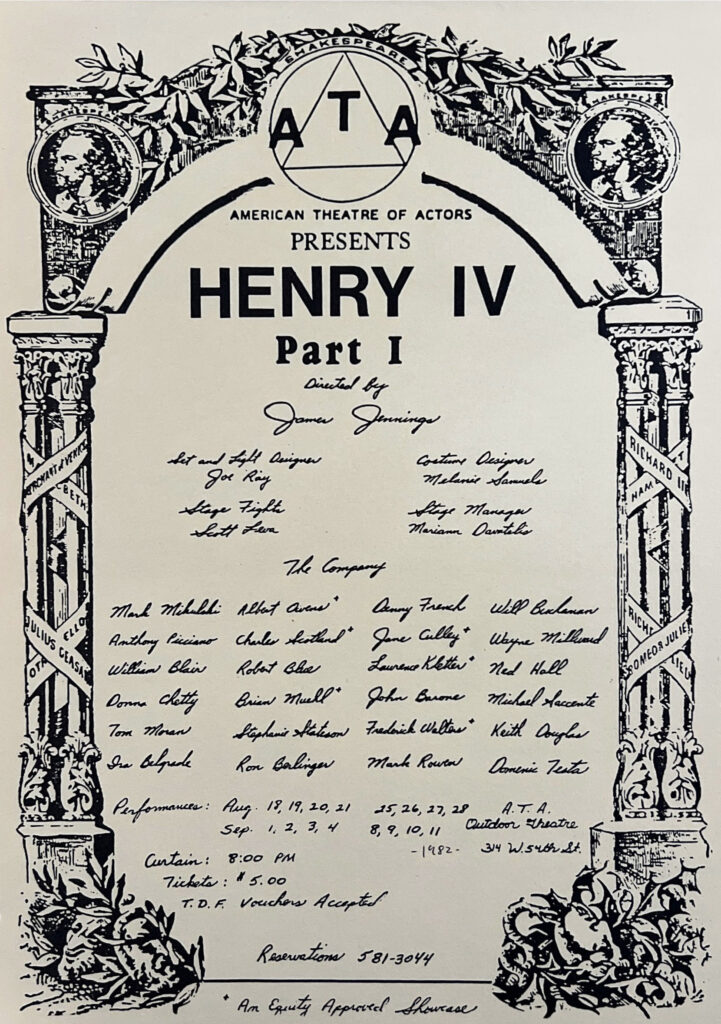 SHAKESPEARE
ATA
SHAKESPEARE
SHAKESPEARE
AMERICAN THEATRE OF ACTORS
PRESENTS
HENRY IV
Part I
Directed by
James Jennings
Set and Light Designer
Joe Ray
Costume Designer
Melanie Samuels
Stage Fights
Scott Leva
Stage Manager
Mariann
The Company
Mark Mikulski Albert Owens+ Danny French Will Buchanan
Anthony Picciano Charles Scotland+ Jane Culley+ Wayne Millward
William Blair Robert Blea Laurence Kletter+ Ned Hall
Donna Chetty Brian Muehl+ John Barone Michael Saccente
Tom Moran Stephanie Stateson Frederick Walters+ Keith Douglas
Ira Belgrade Ron Berlinger Mark Rowen Domenic Testa
MERCHANT OF VENICE
CBETH
RICHARD III
HAM
ELLO
JULIUS CEASAR
OTH
RICH
ROMEO & JULIE
LIE
Performances: Aug. 18, 19, 20, 21 25, 26, 27, 28 A.T.A.
Sep. 1, 2, 3, 4 8, 9, 10, 11 Outdoor Theatre
-1982- 314 W. 54th St.
Curtain: 8:00 PM
Tickets: $5.00
T.D.F. Vouchers Accepted
Reservations 581-3044
+ An Equity Approved Showcase